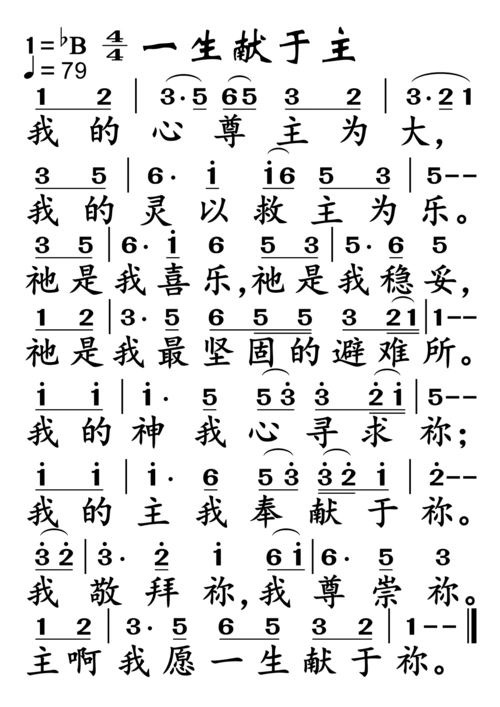 1=♭B 4/4 一生献于主
♩=79
1 2 | 3·5 65 3 2 | 3·21
我的心尊主为大，
3 5 | 6· i i6 5 3 | 5--
我的灵以救主为乐。
3 5 | 6·i 6 5 3 | 5·6 5
祂是我喜乐,祂是我稳妥,
1 2 | 3·5 6 5 5 3 21 | 1--
祂是我最坚固的避难所。
i i | i· 5 53̇ 3̇ 2̇i | 5--
我的神我心寻求祢;
i i | i· 6 53̇ 3̇2̇ i | 2̇--
我的主我奉献于祢。
3̇2̇ | 3̇·2̇ i 6i | 6·5 3
我敬拜祢,我尊崇祢。
1 2 | 3·5 6 5 3 2 | 1--‖
主啊我愿一生献于祢。